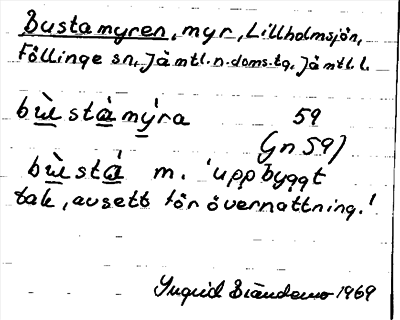 Bustamyren, myr, Lillholmsjön,
Föllinge sn, Jämtl.n.doms.tg, Jämtl.l.
bù̲stá̲mý̲ra 59
(jn 59)
bù̲stá̲ m. 'uppbyggt
tak, avsett för övernattning.'
Ingrid 1969